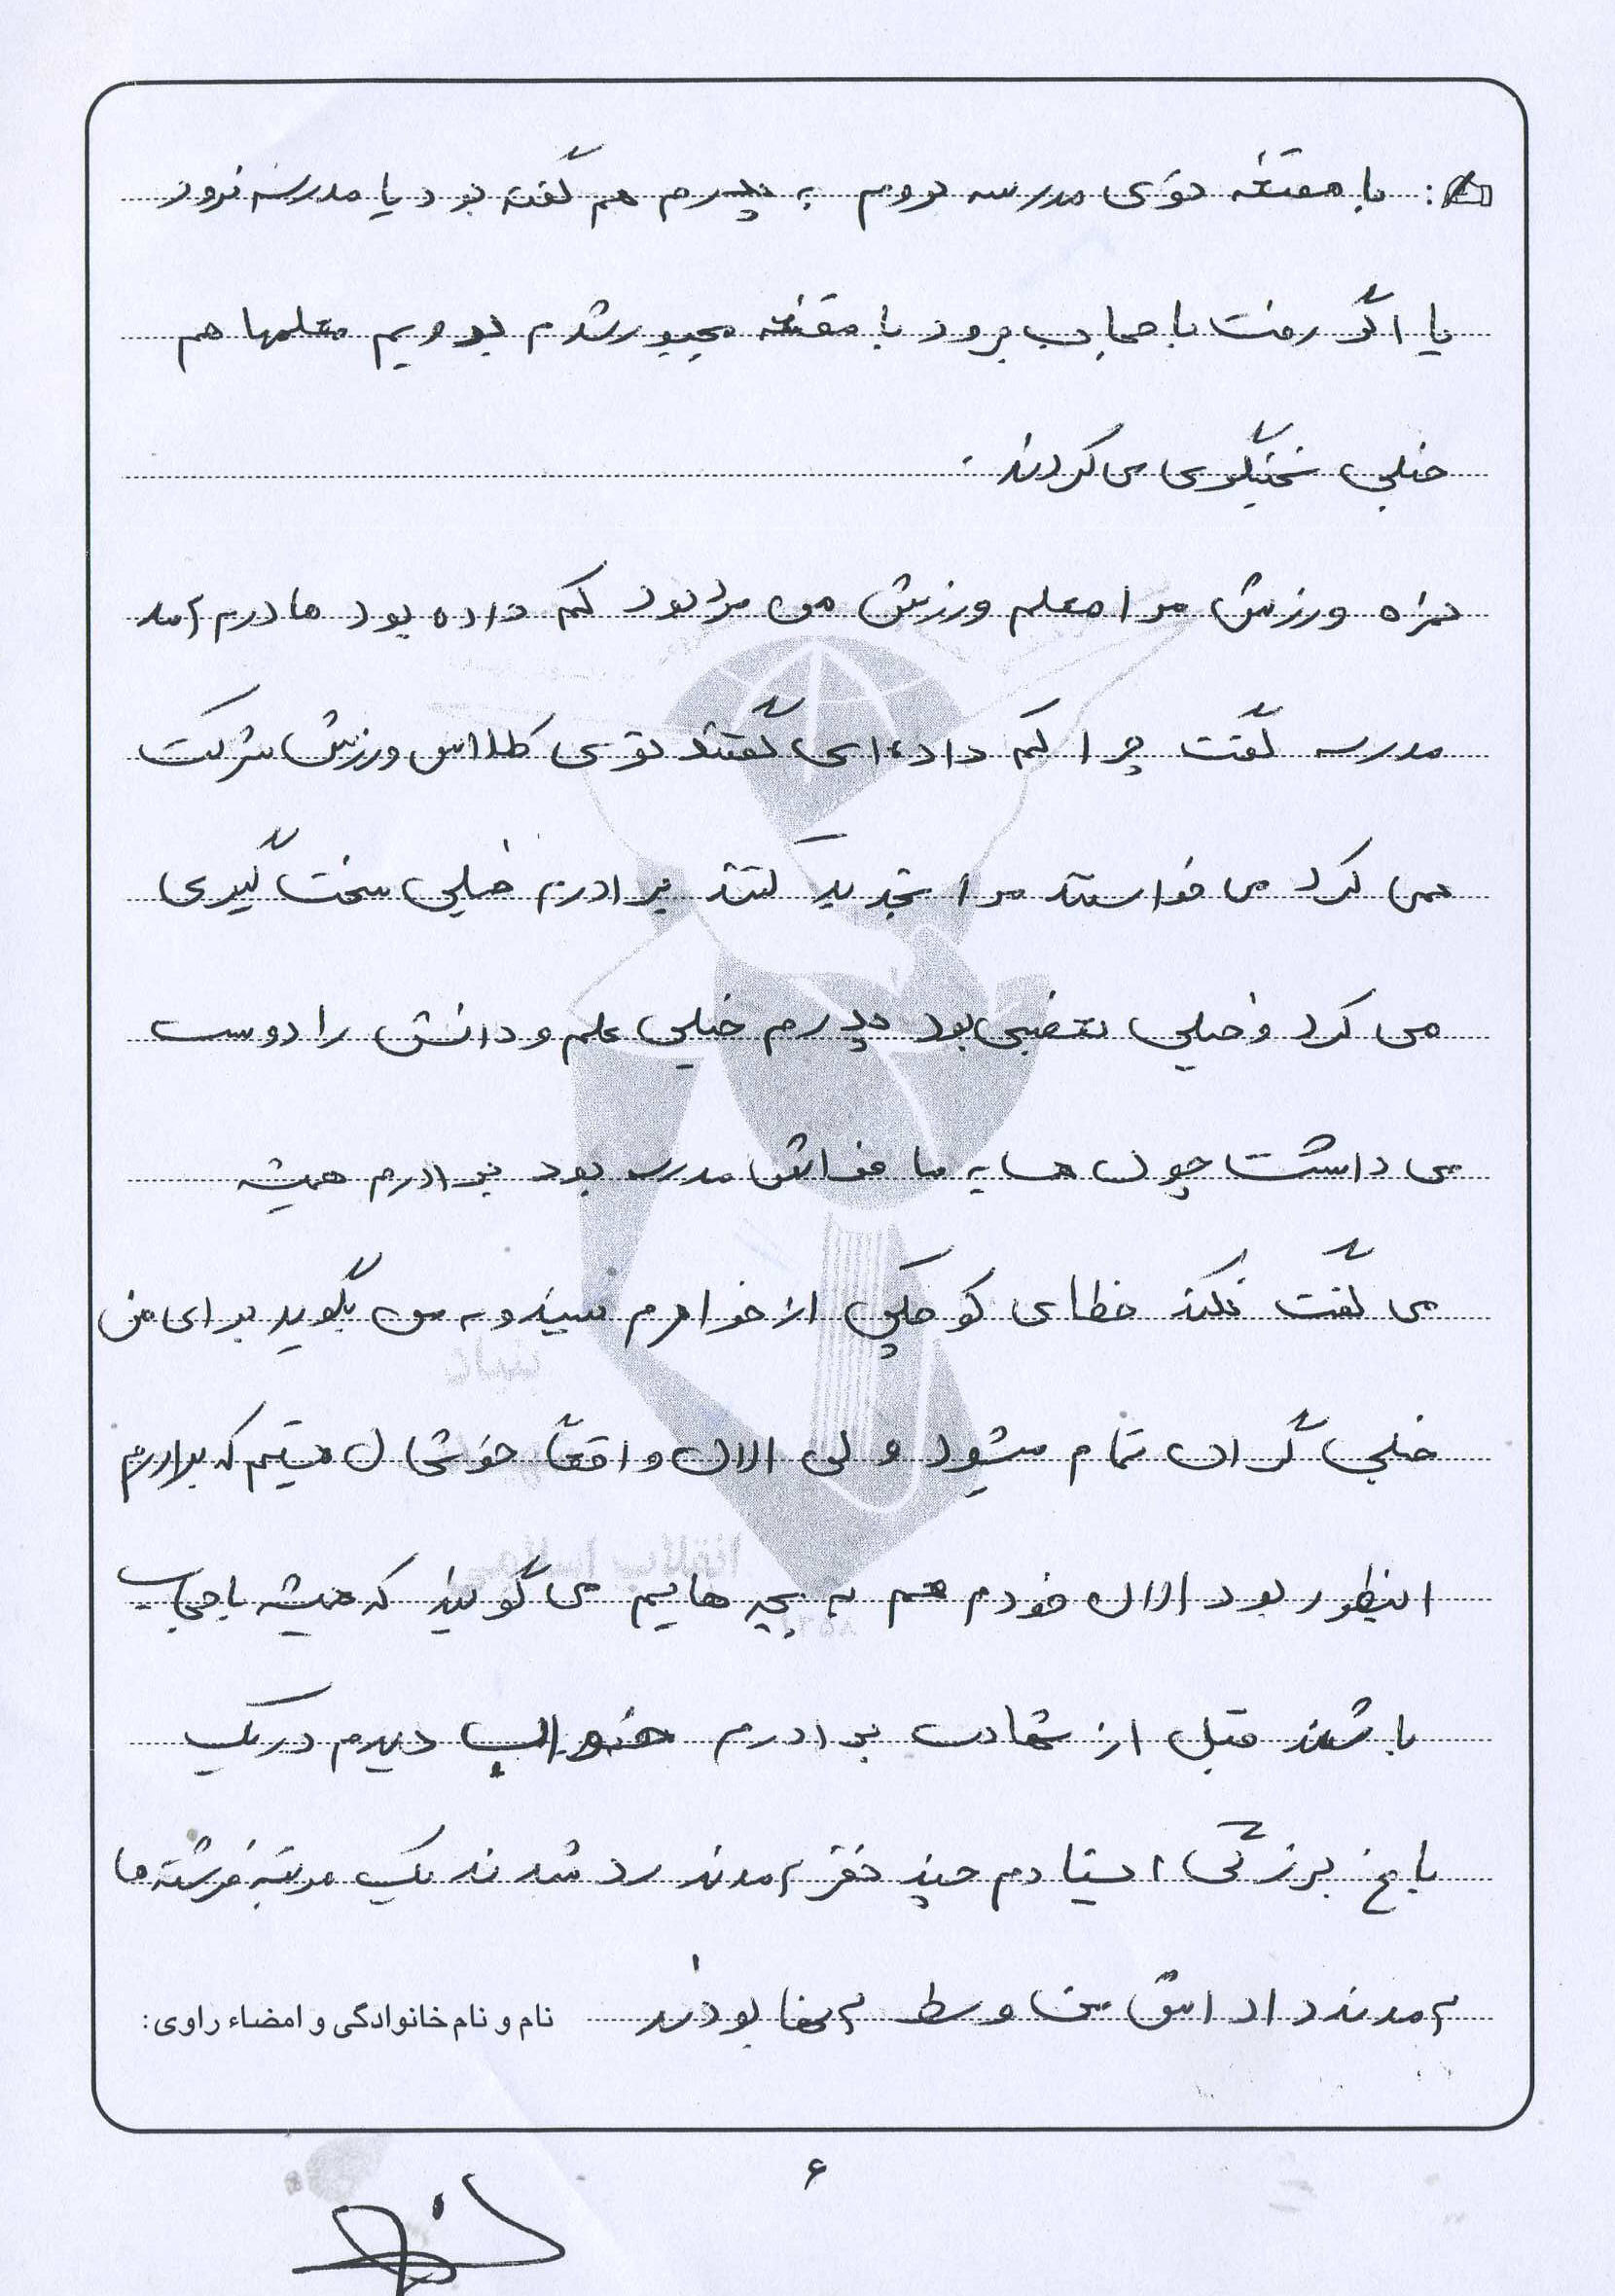 با مقنعه توی مدرسه بروم به پدرم هم گفته بود یا مدرسه نرود
یا اگر رفت با حجاب برود با مقنعه مجبور شدم برویم معلمها هم
خیلی سختگیری می کردند.
نمره ورزش مرا معلم ورزش من مرد بود کم داده بود مادرم آمد
مدرسه گفت چرا کم داده ای گفتند توی کلاس ورزش شرکت
نمی کرد می خواستند مرا تجدید کنند برادرم خیلی سخت گیری
می کرد و خیلی تعصبی بود پدرم خیلی علم و دانش را دوست
می داشت چون همسایه ما فراش مدرسه بود برادرم همیشه
می گفت نکند خطای کوچکی از خواهرم ببیند و به من بگوید برای من
خیلی گران تمام میشود ولی الان واقعاً خوشحال هستیم که برادرم
اینطور بود الان خودم هم به بچه هایم می گویند که همیشه با حجاب
باشند قبل از شهادت برادرم خواب دیدم در یک
باغ بزرگی ایستادم چند نفر آمدند رد شدند یک مرتبه فرشته ها
آمدند داداش من وسط آنها بودند
نام و نام خانوادگی و امضاء راوی:
۶
بنیاد
انقلاب اسلامی